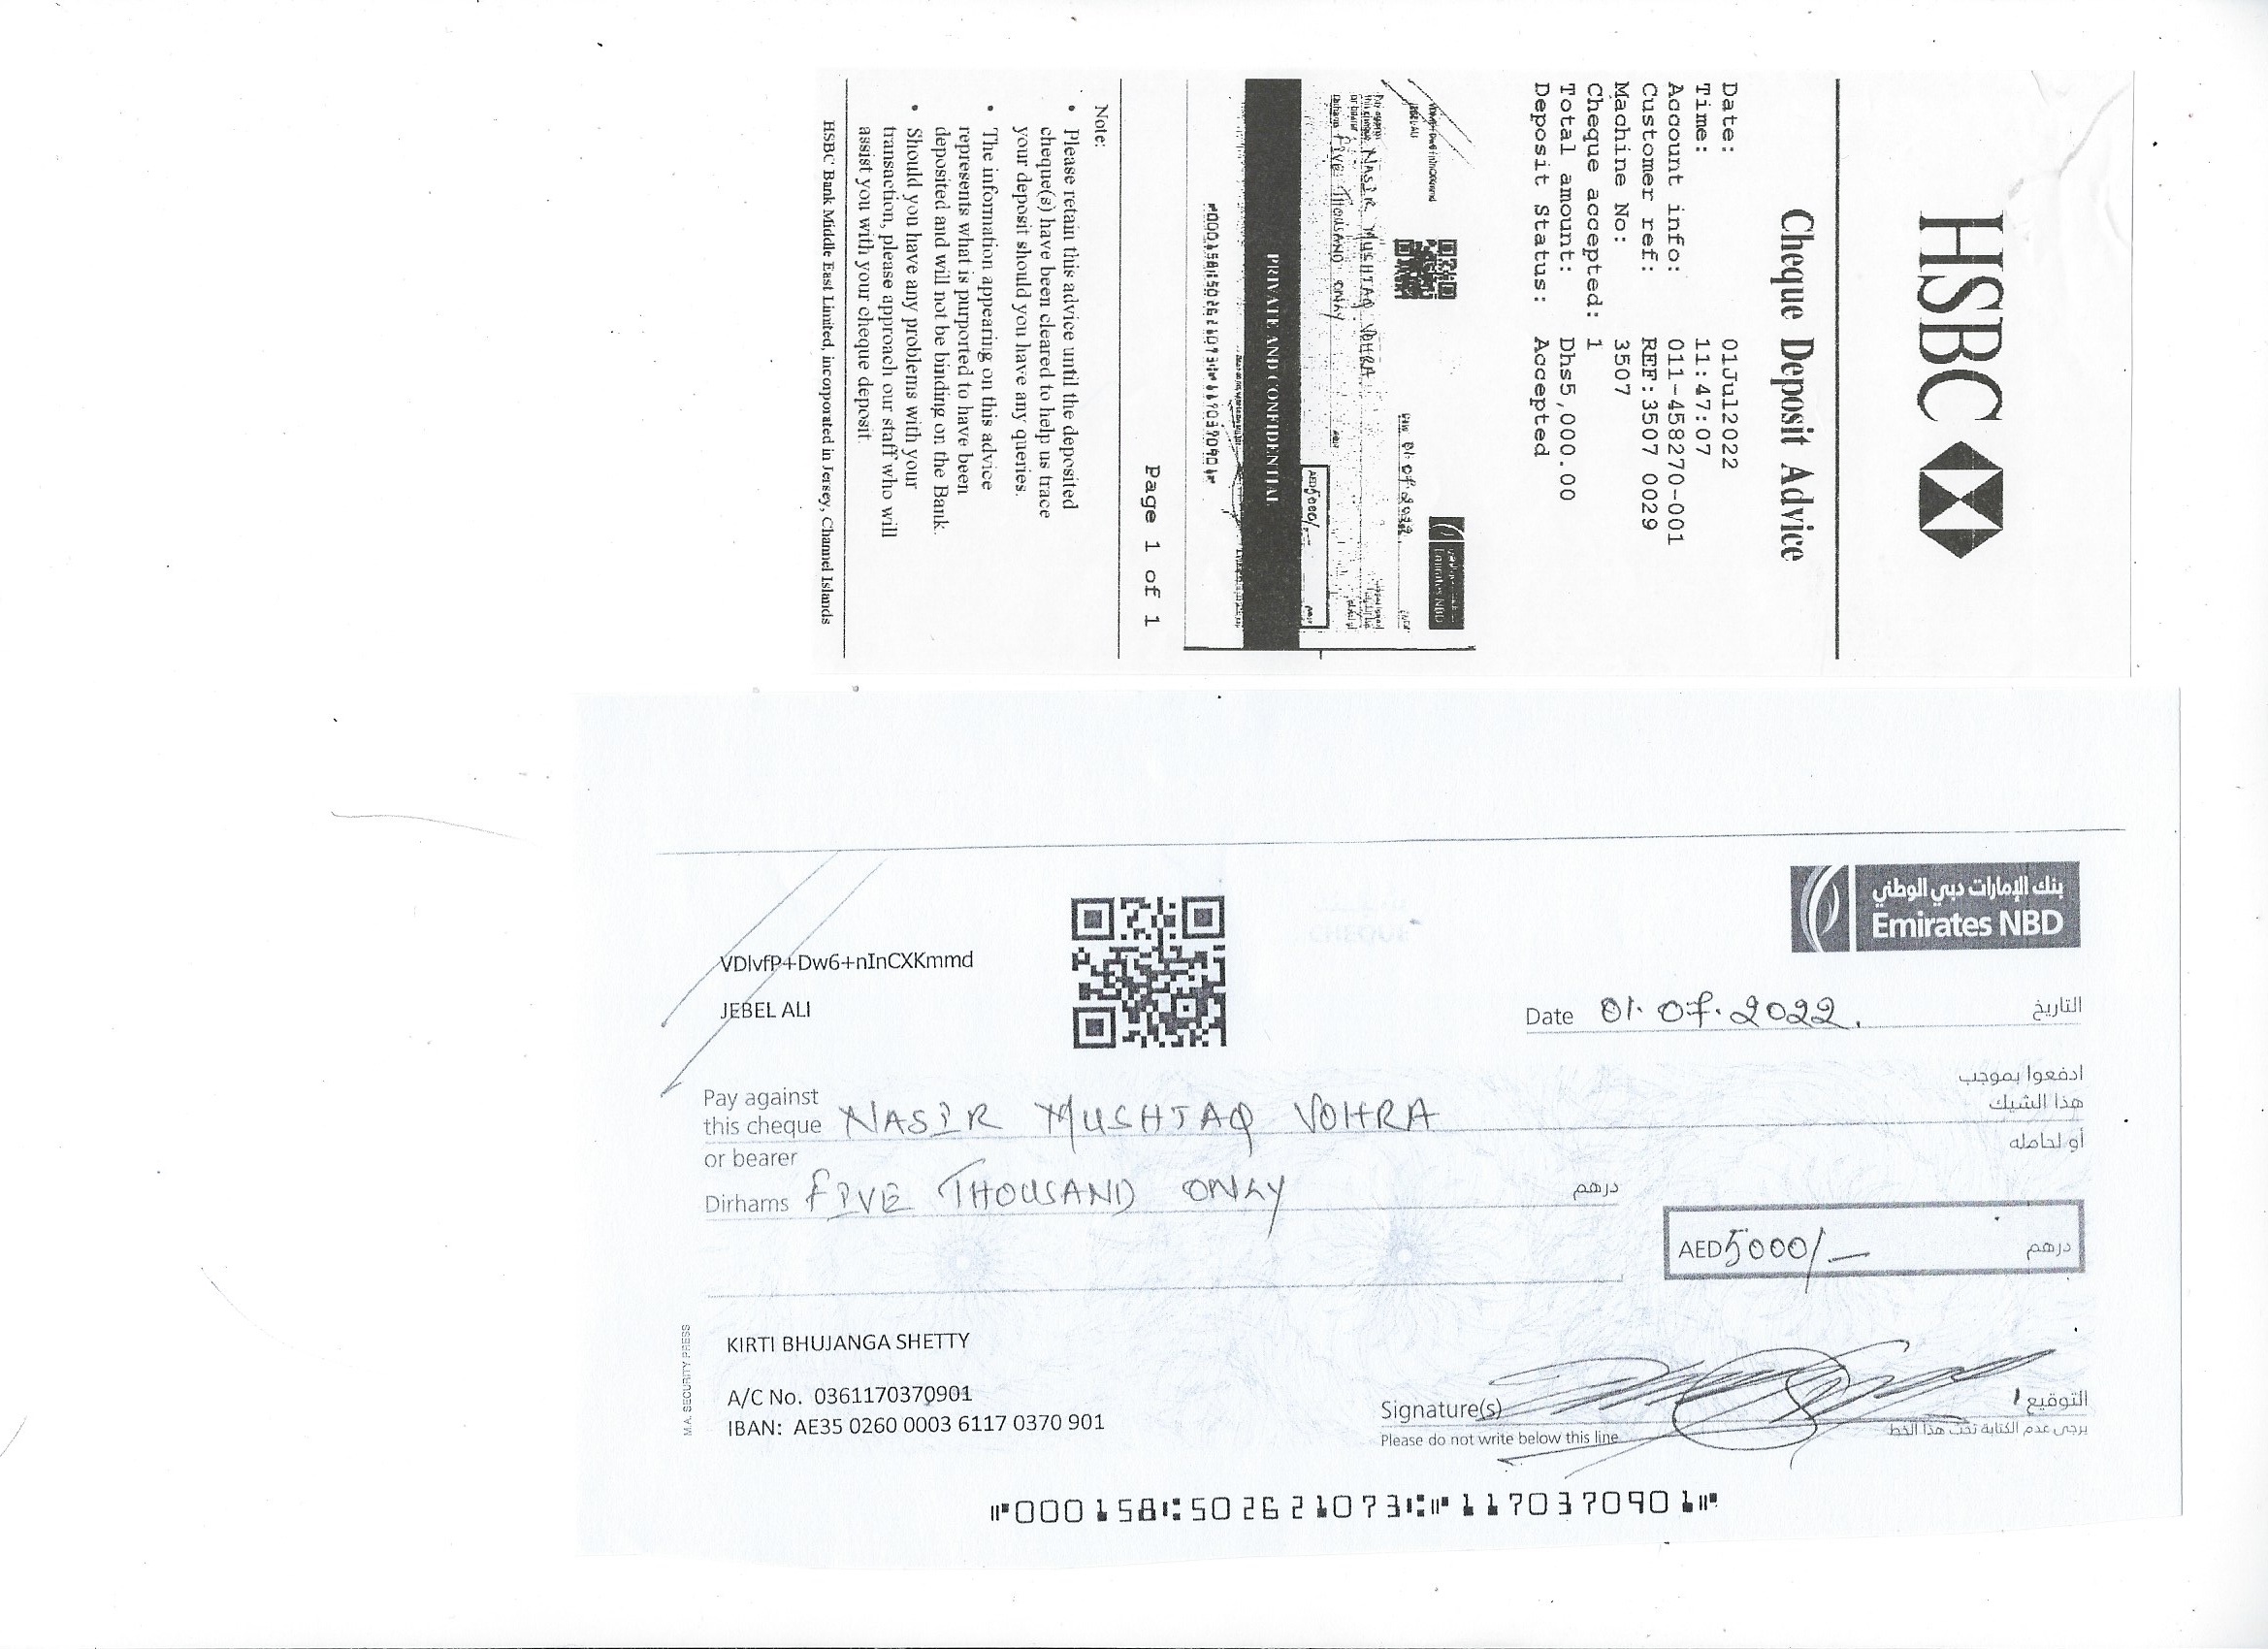 HSBC
Cheque Deposit Advice
Date: 01Jul2022
Time: 11:47:07
Account info: 011-458270-001
Customer ref: REF:3507 0029
Machine No: 3507
Cheque accepted: 1
Total amount: Dhs5,000.00
Deposit Status: Accepted
Emirates NBD
JEBEL ALI
NASIR MUSHTAQ VOHRA
FIVE THOUSAND ONLY
AED 5000/-
PRIVATE AND CONFIDENTIAL
Page 1 of 1
Note:
• Please retain this advice until the deposited
cheque(s) have been cleared to help us trace
your deposit should you have any queries.
• The information appearing on this advice
represents what is purported to have been
deposited and will not be binding on the Bank.
• Should you have any problems with your
transaction, please approach our staff who will
assist you with your cheque deposit.
HSBC Bank Middle East Limited, incorporated in Jersey, Channel Islands
بنك الإمارات دبي الوطني
Emirates NBD
VDlvfP+Dw6+nInCXKmmd
JEBEL ALI
Date 01.07.2022. التاريخ
Pay against ادفعوا بموجب
this cheque NASIR MUSHTAQ VOHRA هذا الشيك
or bearer أو لحامله
Dirhams FIVE THOUSAND ONLY درهم
AED 5000/- درهم
KIRTI BHUJANGA SHETTY
A/C No. 0361170370901
IBAN: AE35 0260 0003 6117 0370 901
Signature(s) التوقيع
Please do not write below this line يرجى عدم الكتابة تحت هذا الخط
M.A. SECURITY PRESS
⑈000158⑆502621073⑆⑈1170370901⑈